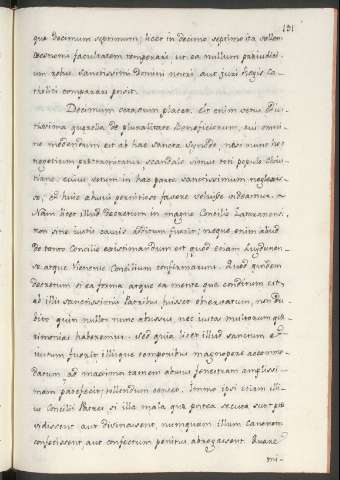 131
que decimum septimum; licet in decimo septimo ita vellem
oeconomi facultatem temporari ut ea nullum praeiuditi-
um rebus sanctissimi Domini nostri, aut Juri Regis Ca-
tholici comparari possit.
Decimum octavum placet. Est enim vetus Diu-
turnaque querela de pluralitate Beneficiorum, cui omni-
no medendum est ab hac sancta Synodo, ne si nunc hoc
negotium praetermittatur, scandalo simus toti populo Chris-
tiano, cuius votum in hac parte sanctissimum neglexis-
se, et huic abusui pernitioso favere veluisse videamur.
Nam licet illud decretum in magno Concilio Lateranensi
non sine iustis causis editum fuerit; neque enim aliud
de tanto Concilio existimandum est quod etiam Lugdunen-
se atque Vienense Concilium confirmarunt. Quod quidem
decretum si ea forma atque ea mente qua conditum est,
ab illis sanctissimis Patribus fuisset observatum, non du-
bito quin nullos nunc abusus, nec iustas multorum que-
rimonias haberemus. Sed quia licet illud sanctum et
iustum fuerit illisque temporibus magnopere accommo-
datum, ad maximos tamen abusus fenestram amplissi-
mam patefecit; tollendum censeo. Immo ipsi etiam illi-
us Concilii Patres si illa mala quae postea secuta sunt prae-
vidissent aut divinassent, numquam illum Canonem
confecissent, aut confectum penitus abrogassent. Quare
mi-